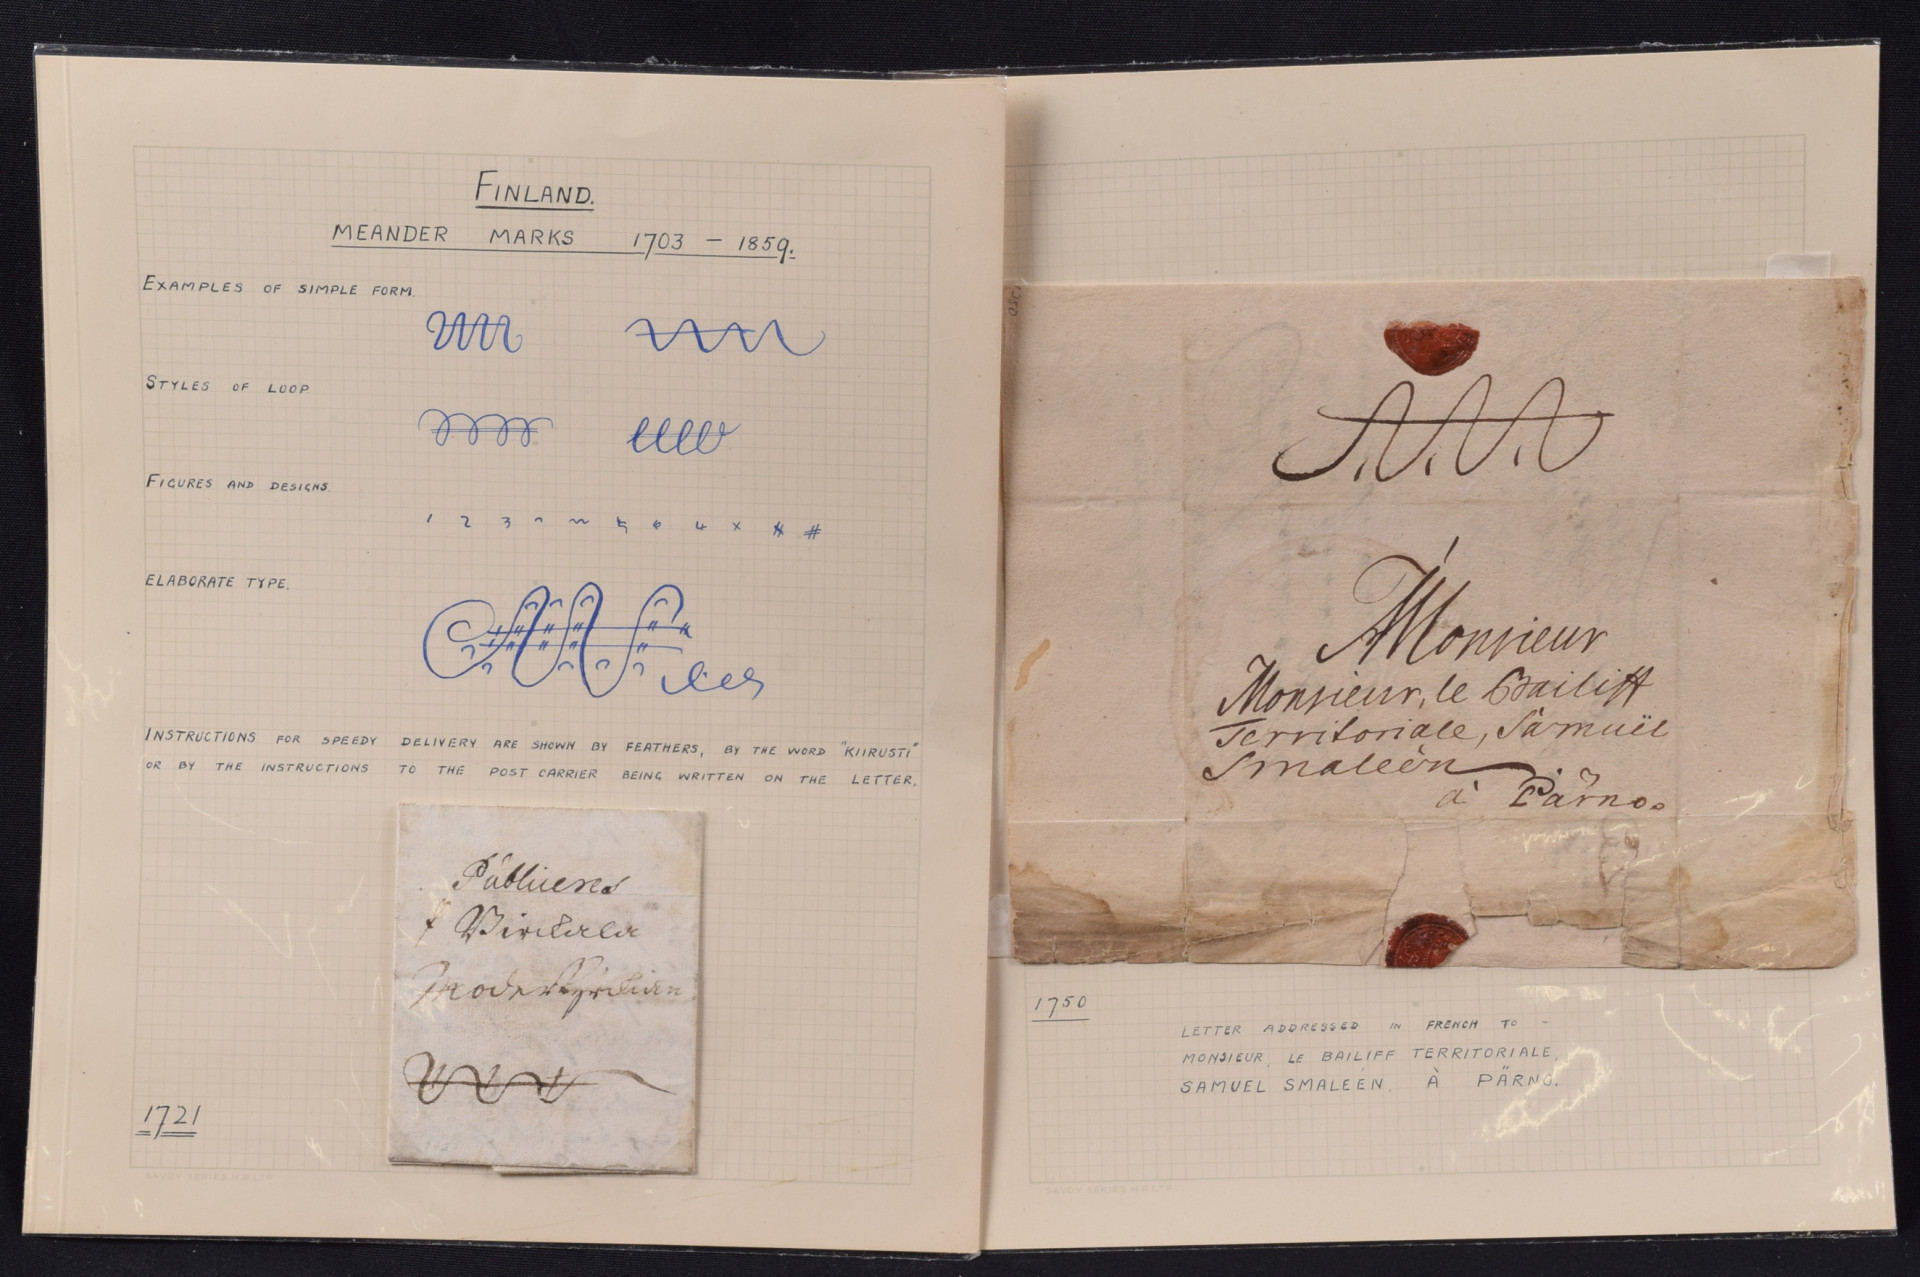 FINLAND.
MEANDER MARKS 1703 – 1859.
EXAMPLES OF SIMPLE FORM.
STYLES OF LOOP
FIGURES AND DESIGNS.
1 2 3
6 4 x #
ELABORATE TYPE.
INSTRUCTIONS FOR SPEEDY DELIVERY ARE SHOWN BY FEATHERS, BY THE WORD "KIIRUSTI"
OR BY THE INSTRUCTIONS TO THE POST CARRIER BEING WRITTEN ON THE LETTER.
Publiceres
Virckala
Moder Kyrckian
1721
SAVOY SERIES
Monsieur
Monsieur, le Bailiff
Territoriale, Samuël
Smaleèn
à Pärno.
1750
LETTER ADDRESSED IN FRENCH TO –
MONSIEUR, LE BAILIFF TERRITORIALE,
SAMUEL SMALEÉN, À PÄRNO.
SAVOY SERIES